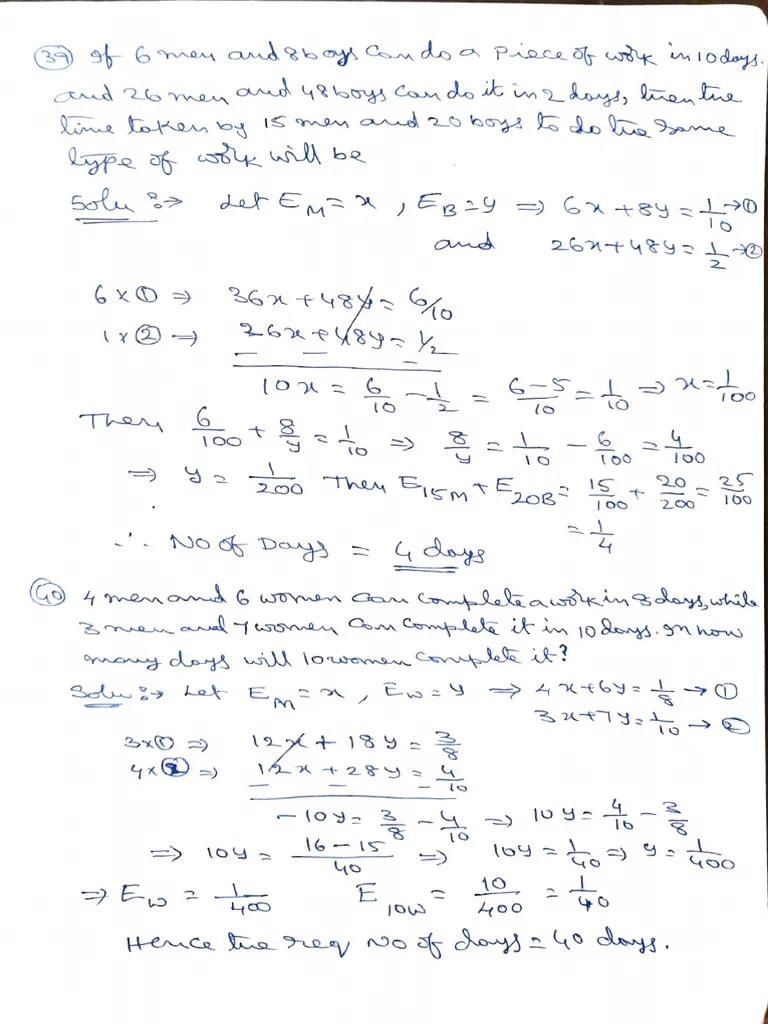 39 If 6 men and 8 boys can do a piece of work in 10 days.
and 26 men and 48 boys can do it in 2 days, then the
time taken by 15 men and 20 boys to do the same
type of work will be
Solu :→ Let E_M = x , E_B = y ⇒ 6x + 8y = 1/10 → ①
and 26x + 48y = 1/2 → ②
6 × ① ⇒ 36x + 48y = 6/10
1 × ② ⇒ 26x + 48y = 1/2
10x = 6/10 - 1/2 = 6-5/10 = 1/10 ⇒ x = 1/100
Then 6/100 + 8/y = 1/10 ⇒ 8/y = 1/10 - 6/100 = 4/100
⇒ y = 1/200 Then E_15M + E_20B = 15/100 + 20/200 = 25/100
= 1/4
∴ No of Days = 4 days
40 4 men and 6 women can complete a work in 8 days, while
3 men and 7 women can complete it in 10 days. In how
many days will 10 women complete it?
Solu :→ Let E_M = x , E_W = y ⇒ 4x + 6y = 1/8 → ①
3x + 7y = 1/10 → ②
3 × ① ⇒ 12x + 18y = 3/8
4 × ② ⇒ 12x + 28y = 4/10
-10y = 3/8 - 4/10 ⇒ 10y = 4/10 - 3/8
⇒ 10y = 16-15/40 ⇒ 10y = 1/40 ⇒ y = 1/400
⇒ E_W = 1/400 E_10W = 10/400 = 1/40
Hence the req No of days = 40 days.